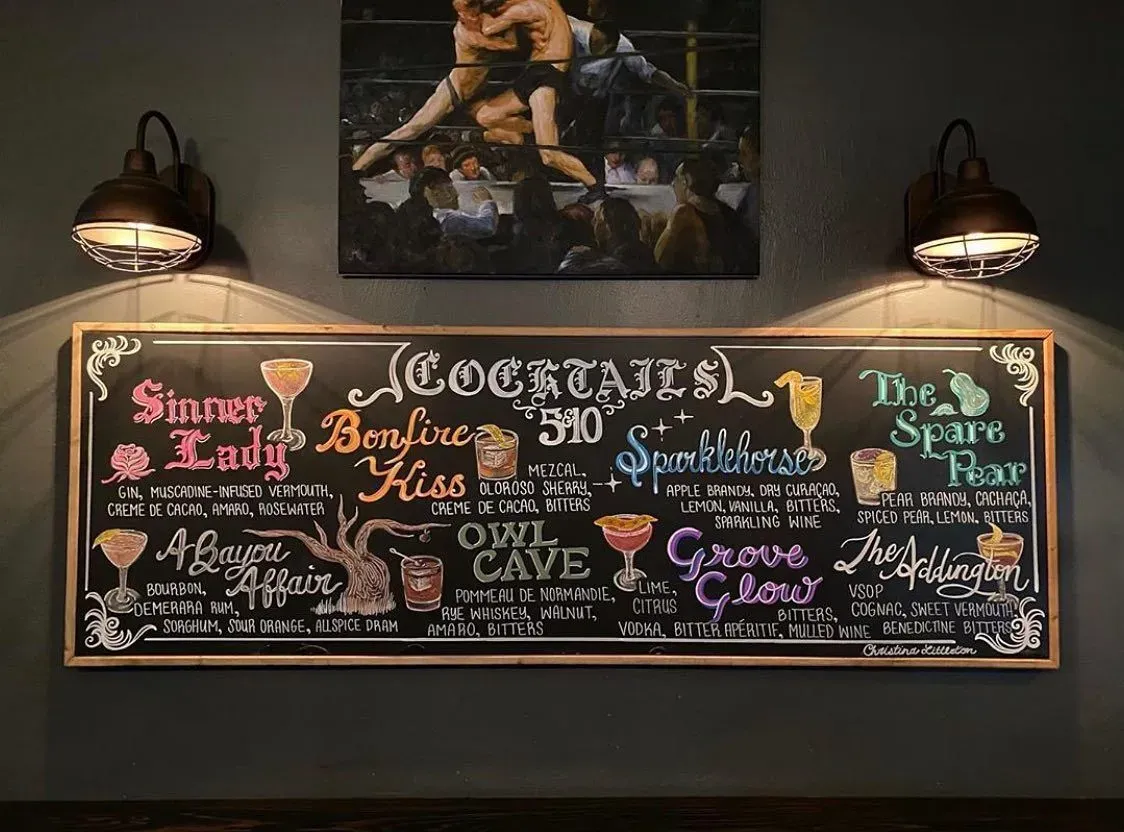 COCKTAILS
5&10
Sinner
Lady
GIN, MUSCADINE-INFUSED VERMOUTH,
CREME DE CACAO, AMARO, ROSEWATER
Bonfire
Kiss
MEZCAL,
OLOROSO SHERRY,
CREME DE CACAO, BITTERS
Sparklehorse
APPLE BRANDY, DRY CURAÇAO,
LEMON, VANILLA, BITTERS,
SPARKLING WINE
The
Spare
Pear
PEAR BRANDY, CACHAÇA,
SPICED PEAR, LEMON, BITTERS
A Bayou
Affair
BOURBON,
DEMERARA RUM,
SORGHUM, SOUR ORANGE, ALLSPICE DRAM
OWL
CAVE
POMMEAU DE NORMANDIE,
RYE WHISKEY, WALNUT,
AMARO, BITTERS
Grove
Glow
LIME,
CITRUS
BITTERS,
VODKA, BITTER APÉRITIF, MULLED WINE
The Addington
VSOP
COGNAC, SWEET VERMOUTH
BENEDICTINE BITTERS
Christina Littleton